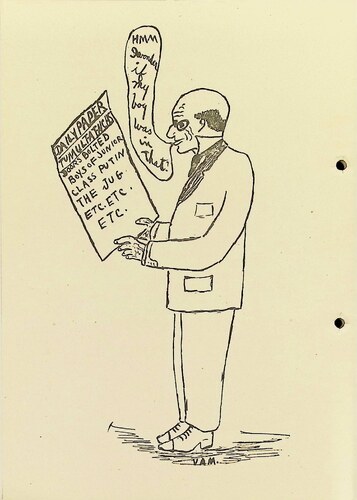 HMM
I wonder
if
my
boy
was
in
that.
DAILY PAPER
TUMULT AT TUCKS
DOORS BOLTED
BOYS OF JUNIOR
CLASS PUT IN
THE JUG
ETC. ETC.
ETC.
VAM.